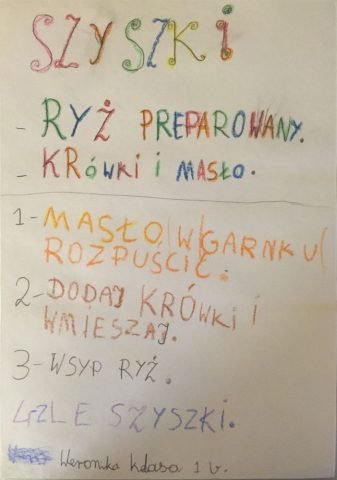 SZYSZKI
- RYŻ PREPAROWANY.
- KRÓWKI I MASŁO.
1- MASŁO W GARNKU
ROZPUŚCIĆ.
2- DODAJ KRÓWKI I
WMIESZAJ.
3- WSYP RYŻ.
4-ZLE SZYSZKI.
Weronika klasa 1 b.